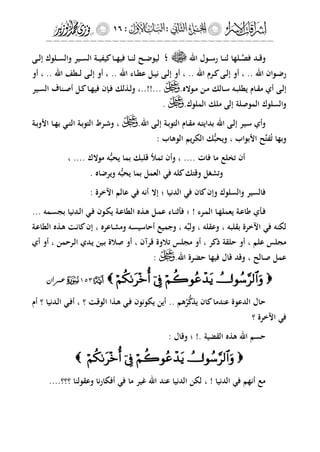 المقام الثاني : الباب الأول : ١٦ :
وقد فصَّلها لنا رسول الله ﷺ ليوضح لنا فيها كيفية السير والسلوك إلى
رضوان الله .. ، أو إلى كرم الله .. ، أو إلى نيل عطاء الله .. ، أو إلى لطف الله .. ، أو
إلى أي مقام يطلبه سالك من مولاه ...!!.... ولذلك فإن فيها كل أصناف السير
والسلوك الموصلة إلى ملك الملوك .
وأي سير إلى الله بدايته مقام التوبة إلى الله. ، وشرط التوبة التي بها الأوبة
وبها تُفتح الأبواب ، ويحبُّك الكريم الوهاب :
أن تخلع ما فات .... ، وأن تملأ قلبك بما يحبُّه مولاك ....،
وتشغل وقتك كله في العمل بما يحبُّه ويرضاه .
فالسير والسلوك وإن كان في الدنيا ؛ إلا أنه في عالم الآخرة :
فأي طاعة يعملها المرء ! ؛ فأثناء عمل هذه الطاعة يكون في الدنيا بجسمه ...
لكنه في الآخرة بقلبه ، وعقله ، ولبِّه ، وجميع أحاسيسه ومشاعره ، إن كانت هذه الطاعة
مجلس علم ، أو حلقة ذكر ، أو مجلس تلاوة قرآن ، أو صلاة بين يدي الرحمن ، أو أي
عمل صالح ، وقد قال فيها حضرة الله. :
﴿ وَٱلرَّسُولُ يَدْعُوكُمْ فِىٓ أُخْرَىٰكُمْ ﴾ ١٥٣ عمران
حال الدعوة عندما كان يذكِّرهم .. أين يكونون في هذا الوقت ؟ ، أفي الدنيا ؟ أم
في الآخرة ؟
حسم الله هذه القضية .! ؛ وقال :
﴿ وَٱلرَّسُولُ يَدْعُوكُمْ فِىٓ أُخْرَىٰكُمْ ﴾
مع أنهم في الدنيا ! ، لكن الدنيا عند الله غير ما في أفكارنا وعقولنا ؟؟؟....